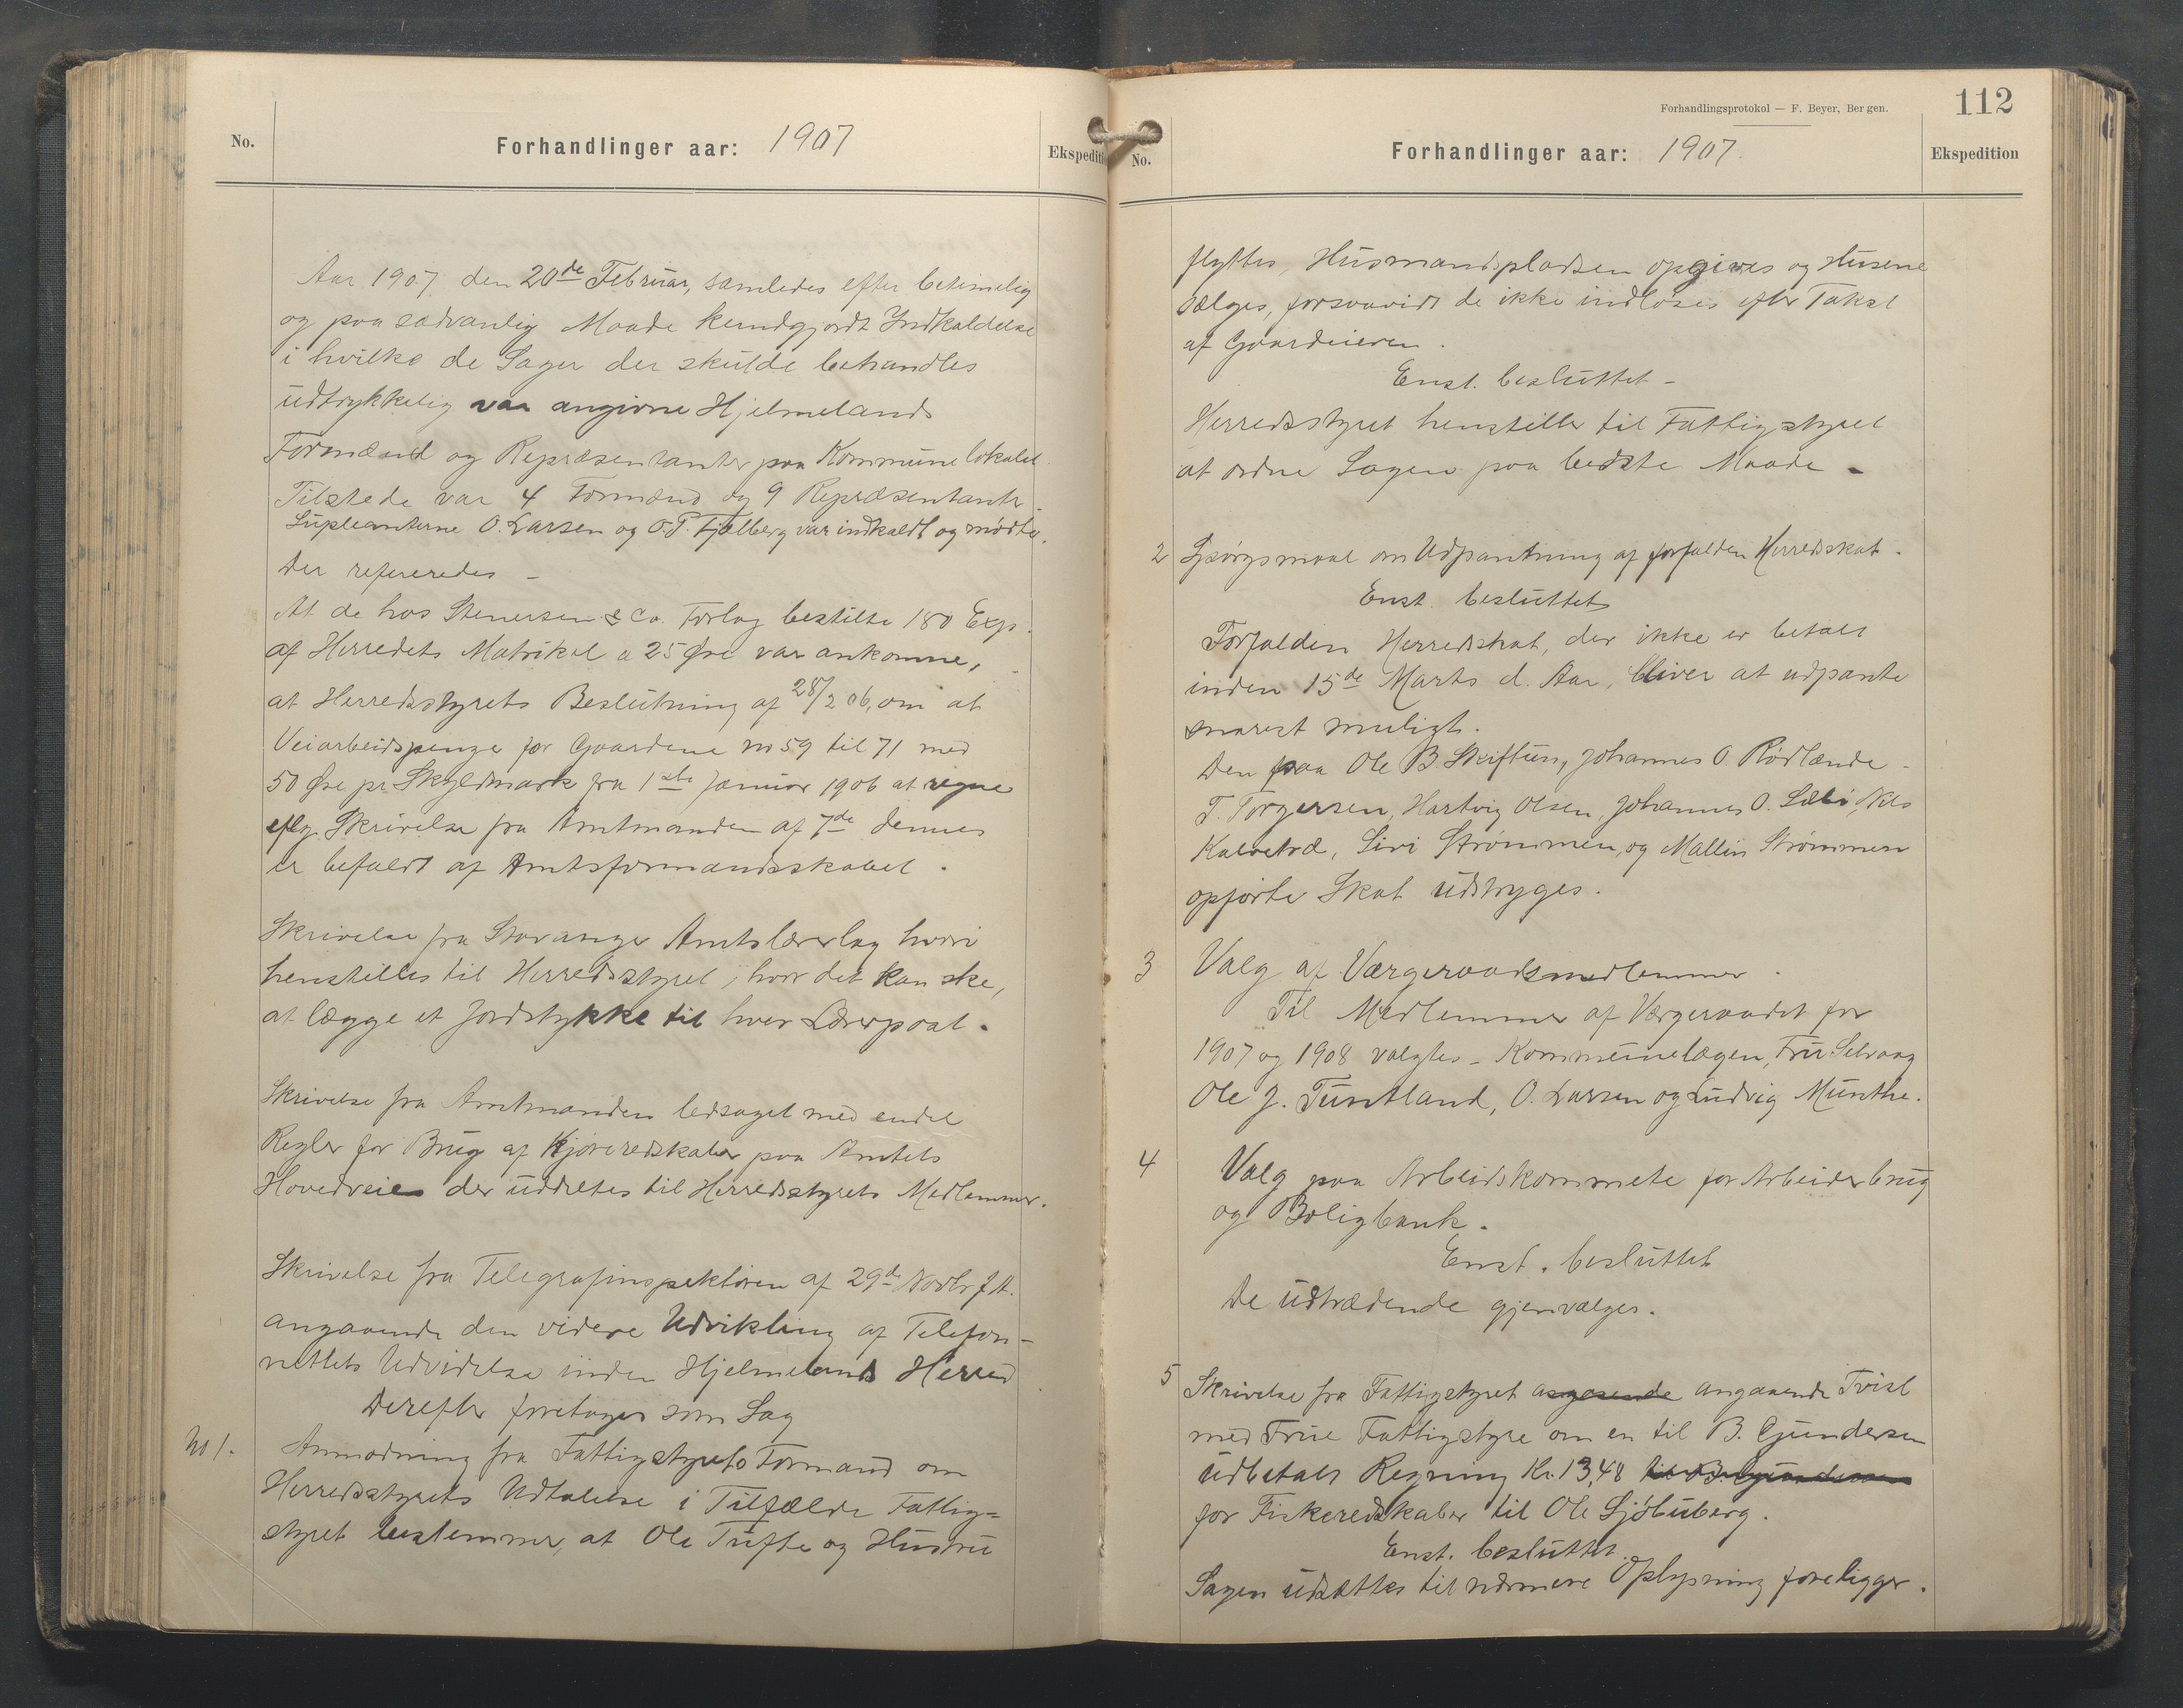 No.
Forhandlinger aar: 1907
Ekspeditio
Aar 1907 den 20de Februar, samledes efter betimelig
og paa sædvanlig Maade kundgjordt Indkaldelse
i hvilke de Sager der skulde behandles
udtrykkelig var angivne Hjelmelands
Formænd og Repræsentanter paa Kommunelokalet.
Tilstede var 4 Formænd og 9 Repræsentanter.
Supleanterne O. Larsen og O. P. Fjelberg var indkaldt og mødte.
Der refereredes –
At de hos Stenersen & Co. Forlag bestilte 180 Exp.
af Herredets Matrikel a 25 Øre var ankomne,
at Herredsstyrets Beslutning af 28/2 06, om at
Veiarbeidspenge for Gaardene no 59 til 71 med
50 Øre pr Skyldmark fra 1ste Januar 1906 at regne
eflg. Skrivelse fra Amtmanden af 7de dennes
er befalet af Amtsformandsskabet.
Skrivelse fra Stavanger Amtslærerlag hvori
henstilles til Herredsstyret, hvor det kan ske,
at lægge et Jordstykke til hver Lærerpost.
Skrivelse fra Amtmanden ledsaget med endel
Regler for Brug af Kjøreredskaber paa Amtets
Hovedveie der uddeltes til Herredsstyrets Medlemmer.
Skrivelse fra Telegrafinspektøren af 29de Novbr f. A.
angaaende den videre Udvikling af Telefon-
nettets Udvidelse inden Hjelmelands Herred
Derefter foretoges som Sag
No 1. Anmodning fra Fattigstyrets Formand om
Herredsstyrets Udtalelse i Tilfælde Fattig=
styret bestemmer, at Ole Tufte og Hustru
Forhandlingsprotokol — F. Beyer, Bergen.
112
No.
Forhandlinger aar: 1907.
Ekspedition
flyttes, Husmandspladsen opgives og Husene
sælges, forsaavidt de ikke indløses efter Takst
af Gaardeieren.
Enst. besluttet –
Herredsstyret henstiller til Fattigstyret
at ordne Sagen paa bedste Maade –
2 Spørgsmaal om Udpantning af forfalden Herredsskat.
Enst. besluttet
Forfalden Herredsskat, der ikke er betalt
inden 15de Marts d. Aar, bliver at udpante
snarest muligt.
Den paa Ole B. Skiftun, Johannes O. Rødlænde
T. Torgersen, Hartvig Olsen, Johannes O. Sæbø, Nils
Kalvetræ, Siri Strømmen, og Mallin Strømmen
opførte Skat udstryges.
3 Valg af Værgeraadsmedlemmer.
Til Medlemmer af Værgeraadet for
1907 og 1908 valgtes – Kommunelægen, Fru Selvaag
Ole J. Tuntland, O. Larsen og Ludvig Munthe.
4 Valg paa Arbeidskommete for Arbeiderbrug
og Boligbank.
Enst. besluttet
De udtrædende gjenvælges.
5 Skrivelse fra Fattigstyret angaaende angaaende Tvist
med Frue Fattigstyre om en til B. Gundersen
udbetalt Regning Kr. 13,48 til B. Gundersen
for Fiskeredskaber til Ole Sjøbuberg.
Enst. besluttet.
Sagen udsættes til nærmere Oplysning foreligger.